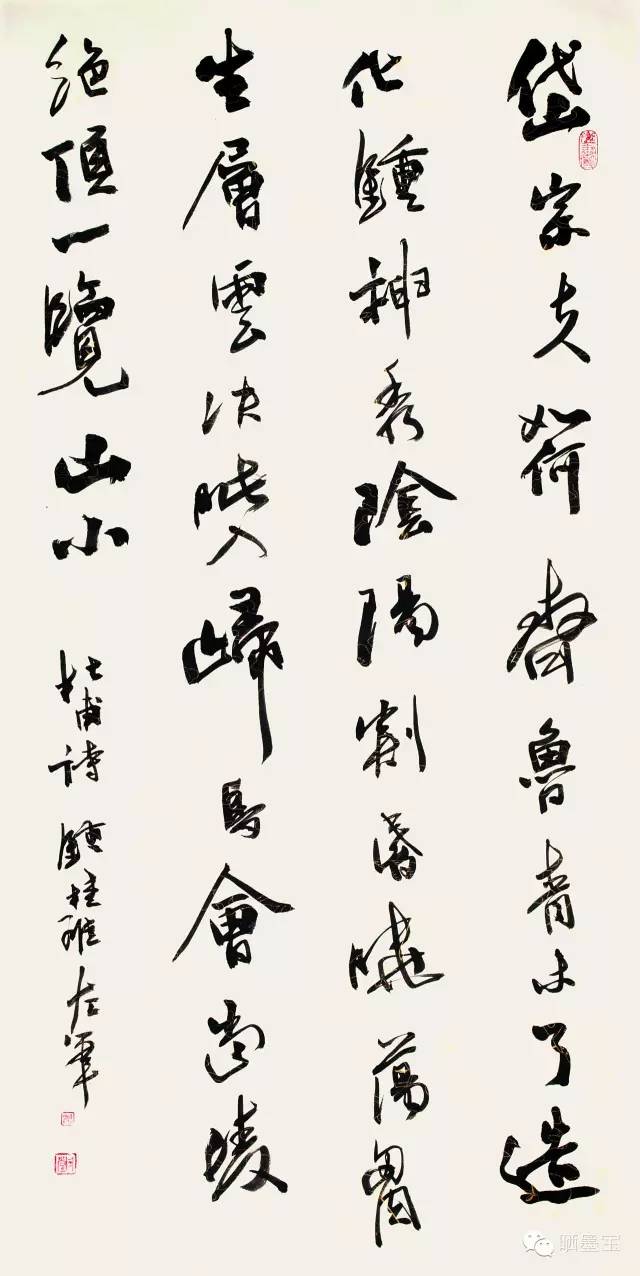 岱宗夫如何齊魯青未了造
化鍾神秀陰陽割昏曉蕩胷
生層雲決眥入歸鳥會當凌
絶頂一覽山小
杜甫詩 鍾桂雄左
晒墨宝